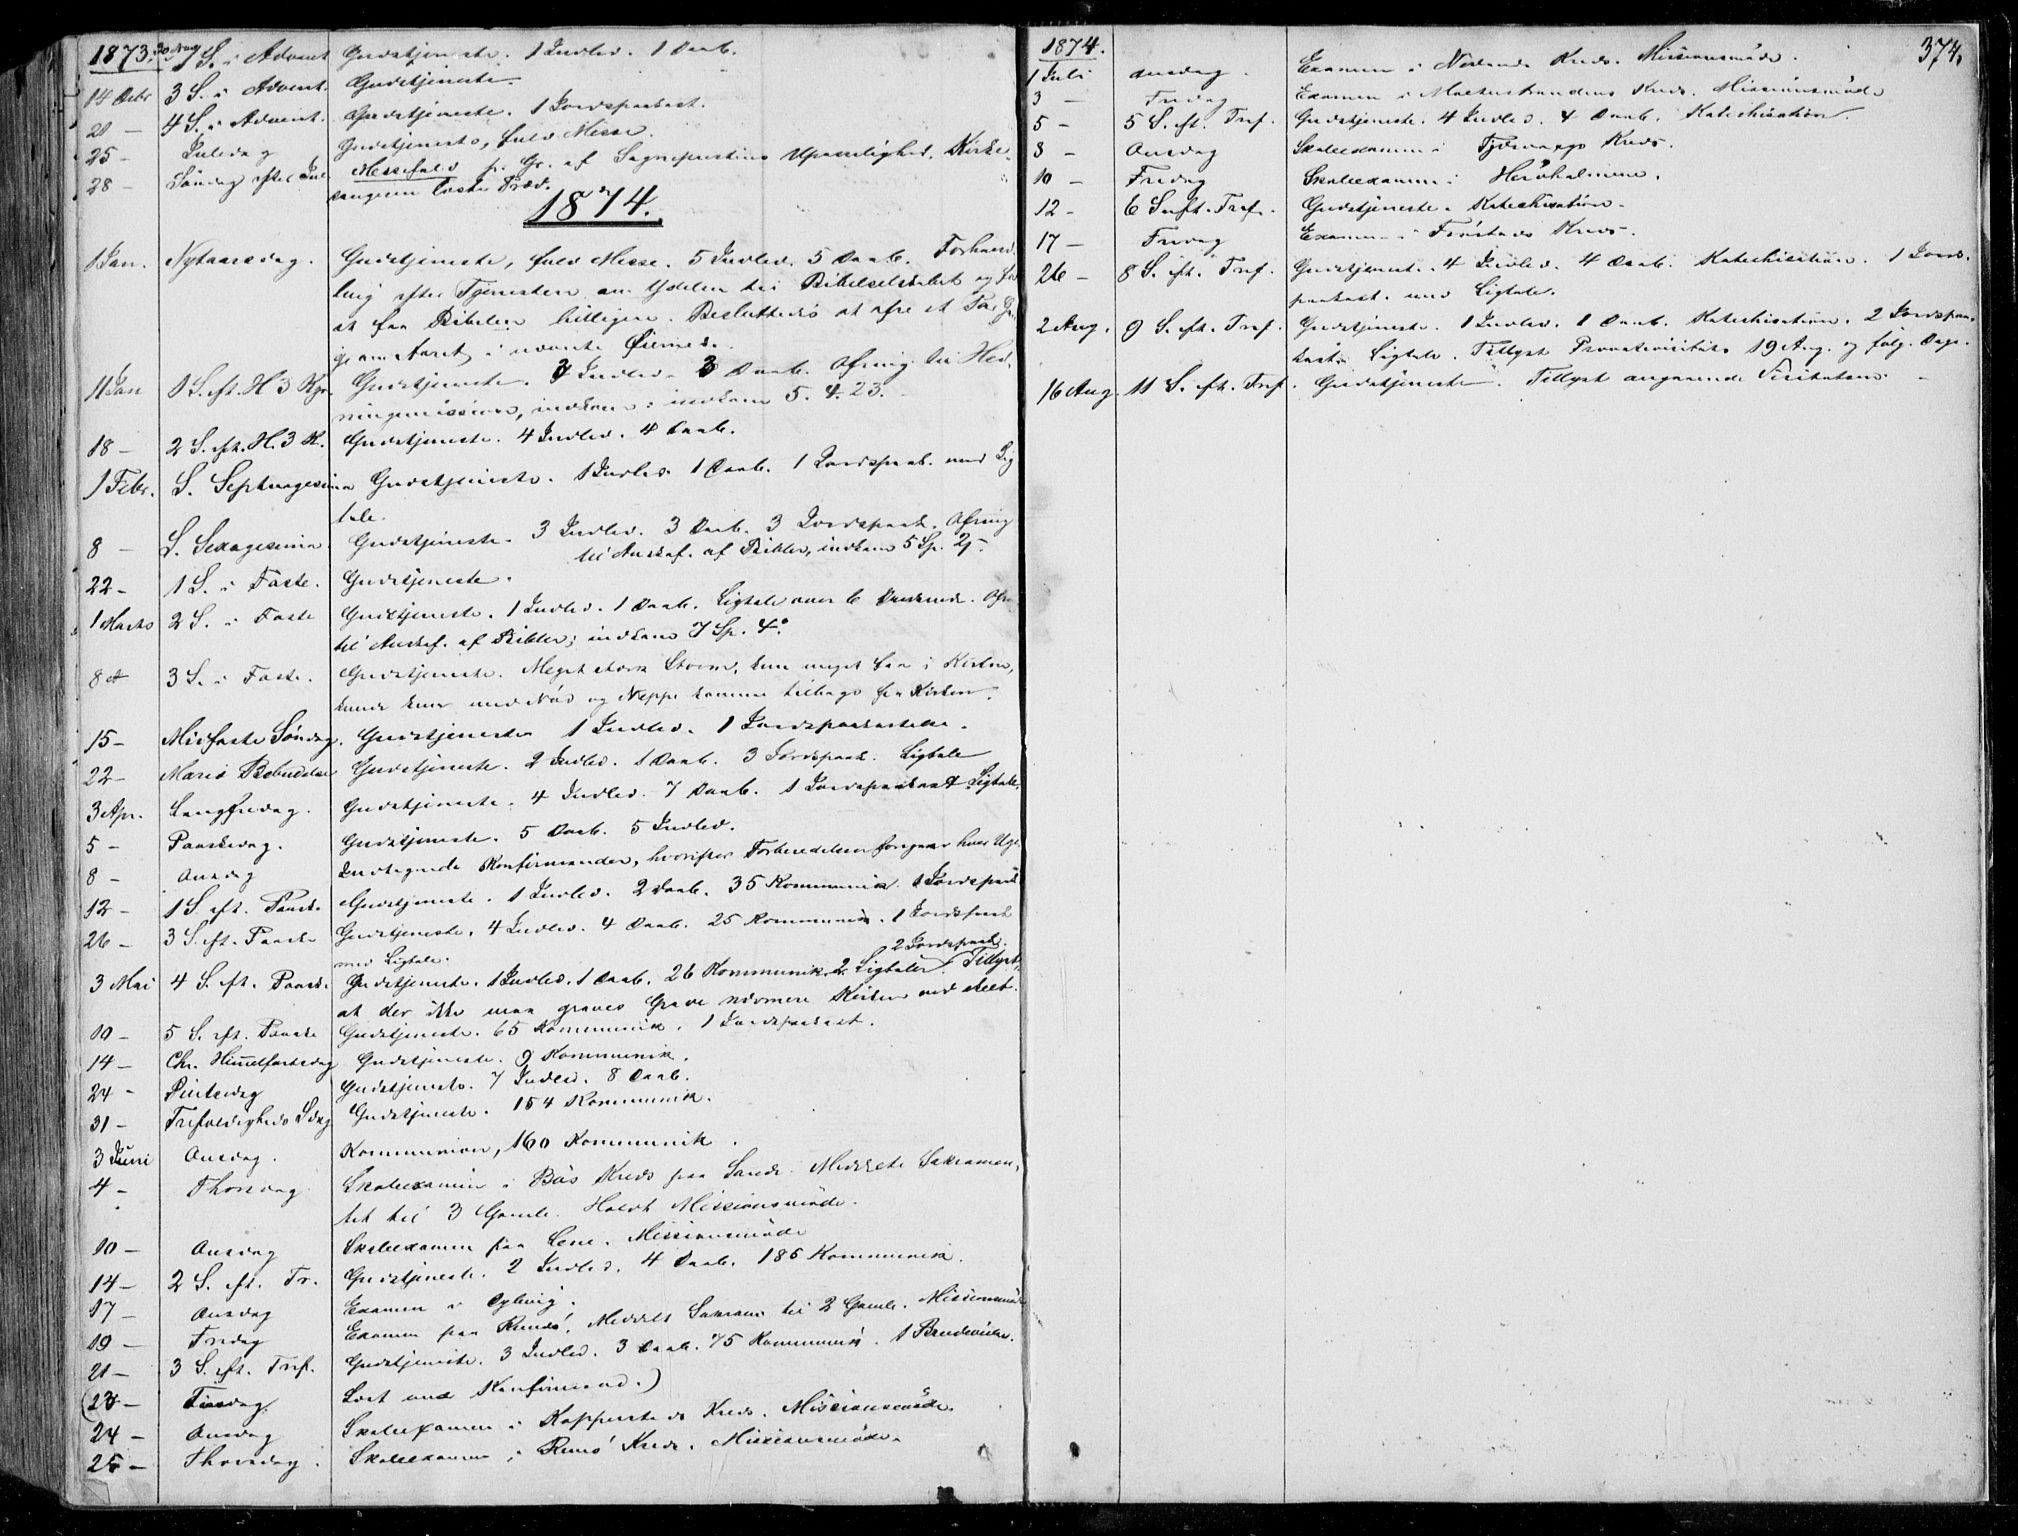 1873. 30 Nov 1 S. i Advent Gudstjeneste. 1 Indled. 1 Daab.
14 Decbr 3 S. i Advent. Gudstjeneste.
21 — 4 S. i Advent. Gudstjeneste. 1 Jordspaakast.
25 — Juledag Gudstjeneste, fuld Messe.
28 — Søndag efter Jul Messefald p. Gr. af Sognepræstens Upasselighed. Kirke-
sangeren læste Præd.
1874.
1 Jan. Nytaarsdag. Gudstjeneste, fuld Messe. 5 Indled. 5 Daab. Forhand-
ling efter Tjenesten om Ydelse til Bibelselskabet og for
at faa Bibelen billigere. Besluttedes at ofre et Par Gan-
ge om Aaret i nævnte Øiemed.
11 Jan 1 S. eft. H. 3 Kgr. Gudstjeneste. 3 Indled. 3 Daab. Ofring til Hed-
ningemissionen, indkom 5. 4. 23.
18 — 2 S. eft. H. 3 K. Gudstjeneste. 4 Indled. 4 Daab.
1 Febr. S. Septuagesima Gudstjeneste. 1 Indled. 1 Daab. 1 Jordspaak. med Lig-
tale.
8 — S. Sexagesima. Gudstjeneste. 3 Indled. 3 Daab. 3 Jordspaak. Ofring
til Anskaf. af Bibler, indkom 5 Sp. 2
22 — 1 S. i Faste. Gudstjeneste.
1 Marts 2 S. i Faste Gudstjeneste. 1 Indled. 1 Daab. Ligtale over 6 Ofr.
til Anskaf. af Bibler; indkom 7 Sp. 4.
8 — 3 S. i Faste. Gudstjeneste. Meget stærk Storm, kun meget faa i Kirken,
kunde kun med Nød og Neppe komme tilbage fra Kirken.
15 — Midfaste Søndag. Gudstjeneste 1 Indled. 1 Jordspaakastelse.
22 — Mariæ Bebudelse Gudstjeneste. 2 Indled. 1 Daab. 3 Jordspaak. Ligtale
3 Apr. Langfredag. Gudstjeneste. 4 Indled. 7 Daab. 1 Jordspaakast Ligtale.
5 — Paaskedag. Gudstjeneste. 5 Daab. 5 Indled.
8 — Onsdag Indtegnede Konfirmander, hvorefter Forberedelsen foregaar hver Uge.
12 — 1 S. eft. Paaske Gudstjeneste. 1 Indled. 2 Daab. 35 Kommunik. 1 Jordspaak
26 — 3 S. eft. Paaske Gudstjeneste. 4 Indled. 4 Daab. 25 Kommunik. 1 Jordspaak
med Ligtale. 2 Jordspaak.
3 Mai 4 S. eft. Paaske Gudstjeneste. 1 Indled. 1 Daab. 26 Kommunik. 2 Ligtaler. Tillyst,
at der ikke maa graves Grave nærmere Kirken end
10 — 5 S. eft. Paaske Gudstjeneste. 65 Kommunik. 1 Jordspaakast.
14 — Chr. Himmelfartsdag Gudstjeneste. 9 Kommunik.
24 — Pintsedag Gudstjeneste. 7 Indled. 8 Daab.
31 — Trefoldigheds Sdag Gudstjeneste. 154 Kommunik.
3 Juni Onsdag. Kommunion, 160 Kommunik.
4 — Thorsdag Skoleexamen i Bøs Kreds paa Sande. Meddelte Sakramen-
tet til 3 Gamle. Holdt Missionsmøde.
10 — Onsdag Skoleexamen paa . Missionsmøde
14 — 2 S. eft. Tr. Gudstjeneste. 2 Indled. 4 Daab. 186 Kommunik.
17 — Onsdag Examen i .
19 — Fredag Examen paa Rundø. Meddelt Sakram. til 2 Gamle. Missionsmøde
21 — 3 S. eft. Tref. Gudstjeneste. 3 Indled. 3 Daab. 75 Kommunik. 1 Brudevielse.
(23 — Tirsdag. Læst med Konfirmand.)
24 — Onsdag Skoleexamen i Kopperstads Kreds. Missionsmøde.
25 — Thorsdag. Skoleexamen i Remø Kreds. Missionsmøde.
1874. 374.
1 Juli Onsdag. Examen i Kreds. Missionsmøde.
3 — Fredag Examen i Kreds. Missionsmøde
5 — 5 S. eft. Tref. Gudstjeneste. 4 Indled. 4 Daab. Katechisation.
8 — Onsdag Skoleexamen i Kreds.
10 — Fredag Skoleexamen i Herøholmene.
12 — 6 S. eft. Tref. Gudstjeneste. Katechisation.
17 — Fredag Examen i Frøstads Kreds.
26 — 8 S. eft. Tref. Gudstjenest. 4 Indled. 4 Daab. Katechisation. 1 Jords-
paakast. med Ligtale.
2 Aug. 9 S. eft. Tref. Gudstjeneste. 1 Indled. 1 Daab. Katechisation. 2 Jordspaa-
kast. Ligtale. Tillyst Provstevisitats 19 Aug. og følg. Dage.
16 Aug. 11 S. eft. Tref. Gudstjeneste. Tillyst angaaende Visitatsen.